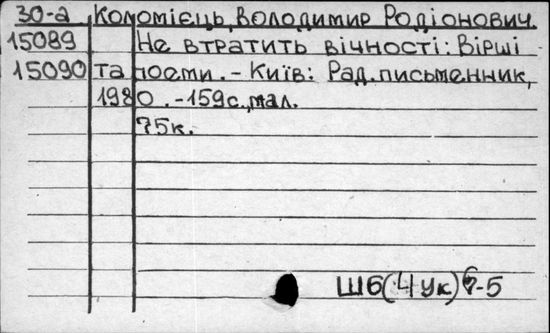 30-а Коломієць, Володимир Родіонович.
15089 Не втратить вічності: Вірші
15090 та поеми. - Київ: Рад. письменник,
1980. - 159 с., мал.
75к.
Ш6(4Ук)6-5